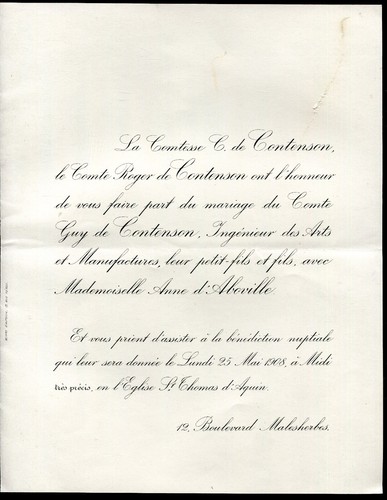 La Comtesse C. de Contenson,
le Comte Roger de Contenson ont l'honneur
de vous faire part du mariage du Comte
Guy de Contenson, Ingénieur des Arts
et Manufactures, leur petit-fils et fils, avec
Mademoiselle Anne d'Aboville.
Et vous prient d'assister à la bénédiction nuptiale
qui leur sera donnée le Lundi 25 Mai 1908, à Midi
très précis, en l'Eglise St. Thomas d'Aquin.
12, Boulevard Malesherbes.